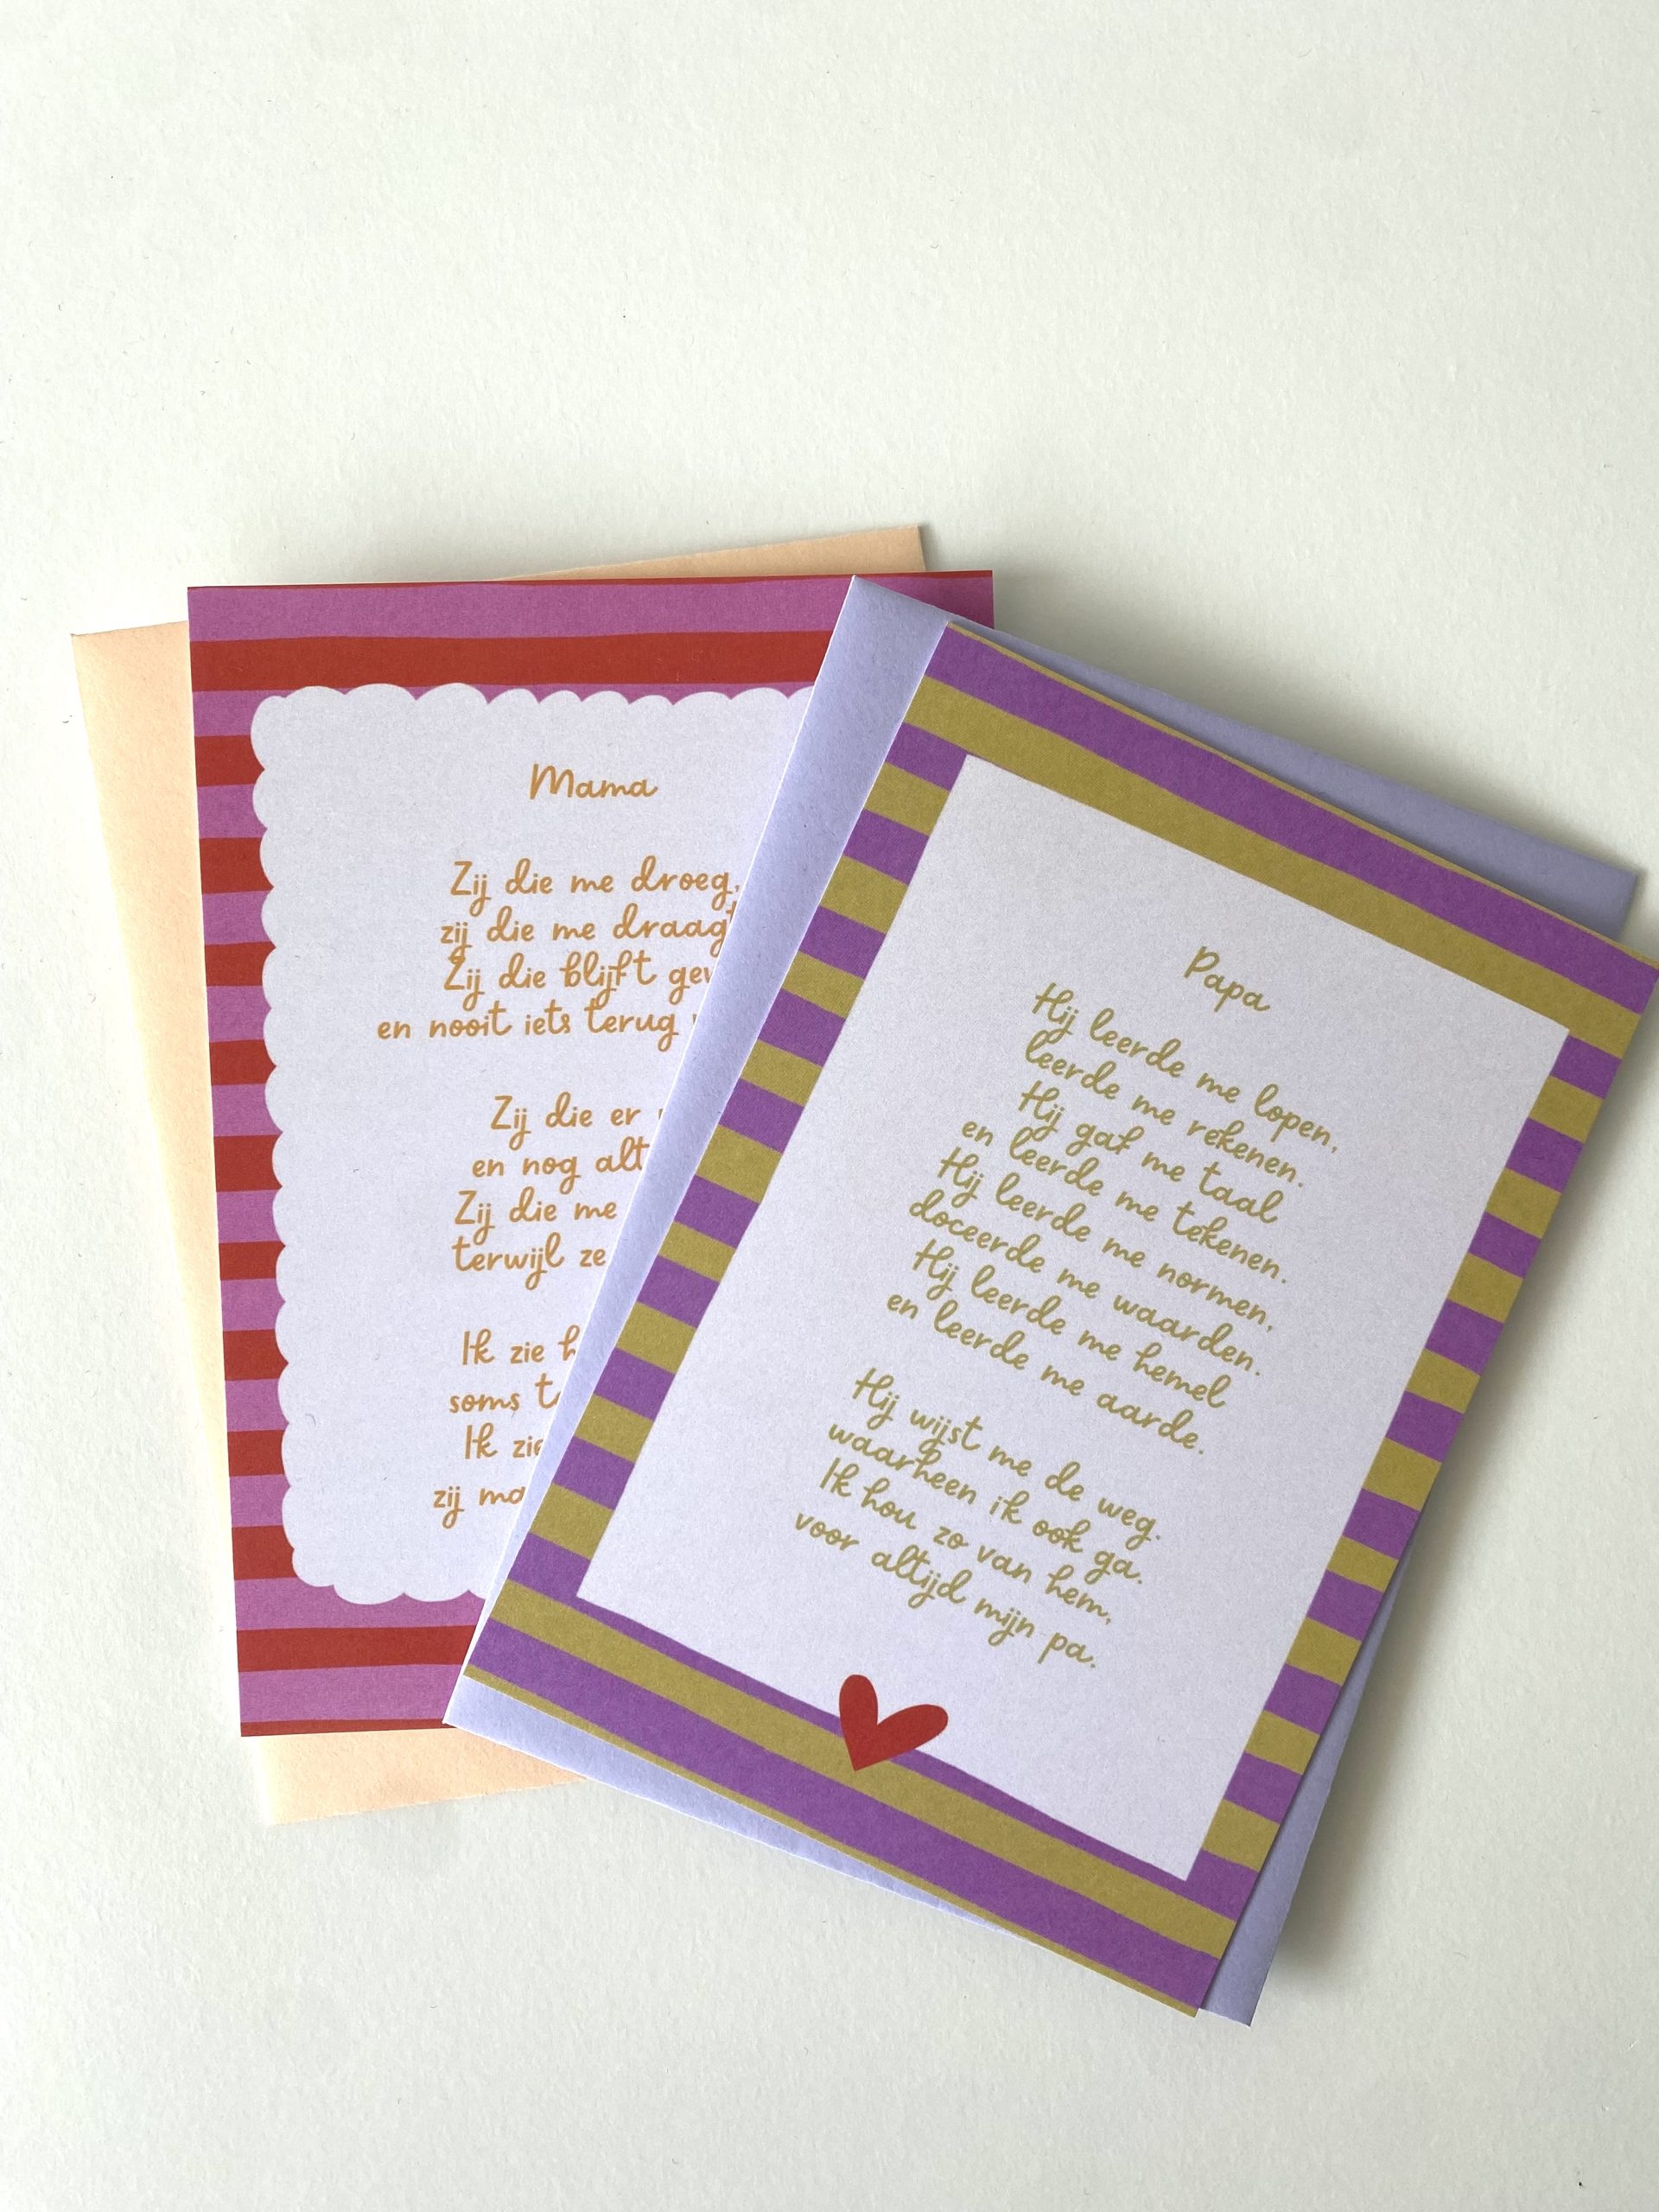 Mama
Zij die me droeg,
zij die me draagt
Zij die blijft
en nooit iets terug
Zij die er
en nog
Zij die me
terwijl ze
Ik zie
soms
Ik
zij
Papa
Hij leerde me lopen,
leerde me rekenen.
Hij gaf me taal
en leerde me tekenen.
Hij leerde me normen,
doceerde me waarden.
Hij leerde me hemel
en leerde me aarde.
Hij wijst me de weg.
waarheen ik ook ga.
Ik hou zo van hem,
voor altijd mijn pa.